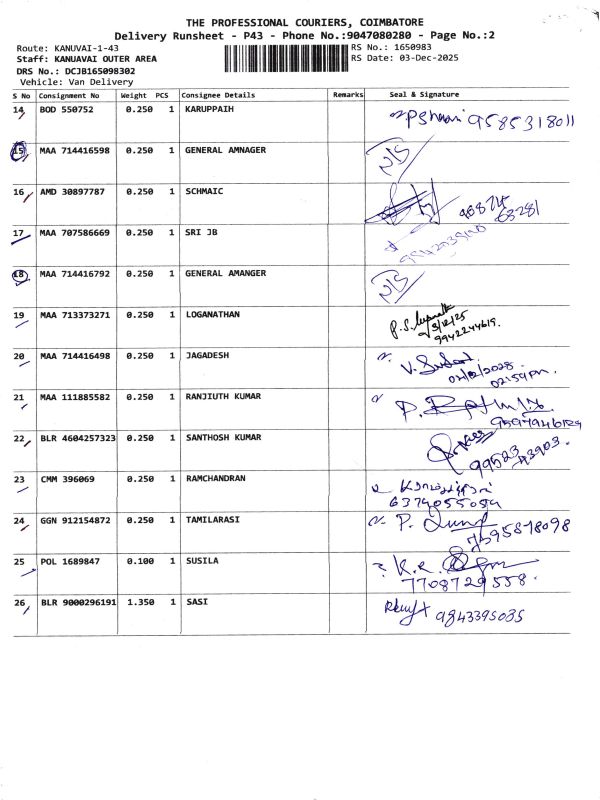 THE PROFESSIONAL COURIERS, COIMBATORE
Delivery Runsheet - P43 - Phone No.:9047080280 - Page No.:2
Route: KANUVAI-1-43 RS No.: 1650983
Staff: KANUAVAI OUTER AREA RS Date: 03-Dec-2025
DRS No.: DCJB165098302
Vehicle: Van Delivery
S No Consignment No Weight PCS Consignee Details Remarks Seal & Signature
14 BOD 550752 0.250 1 KARUPPAIH 9585318011
15 MAA 714416598 0.250 1 GENERAL AMNAGER N/S
16 AMD 30897787 0.250 1 SCHMAIC 90874 63281
17 MAA 707586669 0.250 1 SRI JB
18 MAA 714416792 0.250 1 GENERAL AMANGER N/S
19 MAA 713373271 0.250 1 LOGANATHAN P.S. 3/12/25
9942244619.
20 MAA 714416498 0.250 1 JAGADESH V.
02:54pm.
21 MAA 111885582 0.250 1 RANJIUTH KUMAR P.
22 BLR 4604257323 0.250 1 SANTHOSH KUMAR 99523 43903.
23 CMM 396069 0.250 1 RAMCHANDRAN
6374055054
24 GGN 912154872 0.250 1 TAMILARASI P.
7395878098
25 POL 1689847 0.100 1 SUSILA K.R.
7708729558.
26 BLR 9000296191 1.350 1 SASI 9843395035